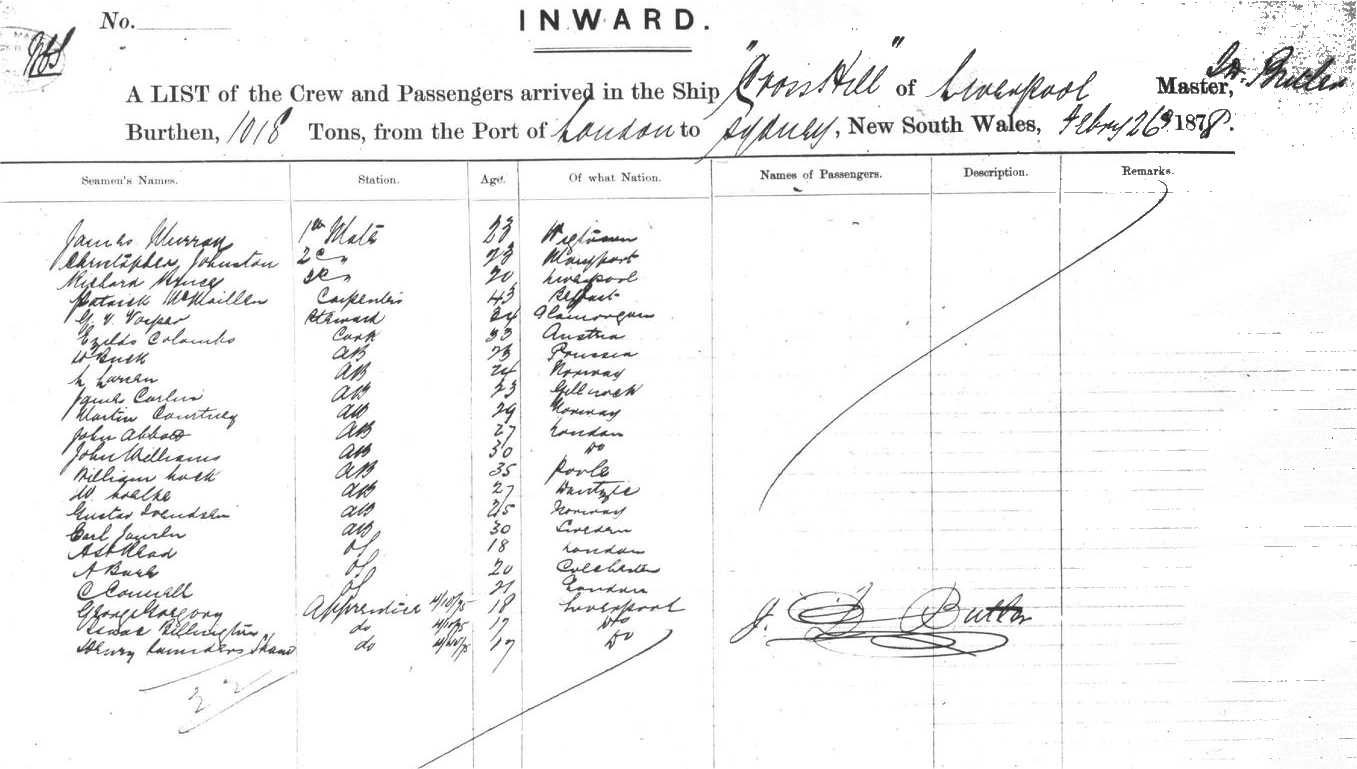 No.
INWARD.
A LIST of the Crew and Passengers arrived in the Ship "Cross Hill" of Liverpool Master, Butler
Burthen, 1018 Tons, from the Port of London to Sydney, New South Wales, Febry 26 1878.
Seamen's Names. Station. Age. Of what Nation. Names of Passengers. Description. Remarks.
James Murray 1st Mate 23 Wigtown
Christopher Johnston 2 23 Maryport
Richard 20 Liverpool
Patrick Carpenter 43 Belfast
Steward 34 Glamorgan
Colombo Cook 33 Austria
AB 23 Prussia
L Larsen AB 24 Norway
James AB 23
Martin Courtney AB 29 Norway
John Abbott AB 27 London
John Williams AB 30 Do
William AB 35 Poole
W. AB 27 Dantzic
Gustav Svendsen AB 25 Norway
Carl AB 30 Sweden
18 London
A 20 Colchester
C Connell 21 London
George Gregory Apprentice 4/10/75 18 Liverpool
Isaac Billington do 17 Do
Henry Saunders do 17 Do
J. D Butler
22